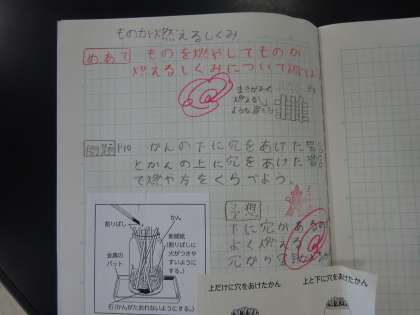 ものが燃えるしくみ
めあて ものを燃やしてものが
燃えるしくみについて調
燃える
問題 P10 かんの下に穴をあけた
とかんの上に穴をあけた
で燃や方をくらべよう。
予想
下に穴がある
よく燃える
穴が
かん
割りばし
新聞紙
(割りばしに
火がつきや
すいように
する。)
金属の
バット
石(かんがたおれないようにする。)
上だけに穴をあけたかん
上と下に穴をあけたかん